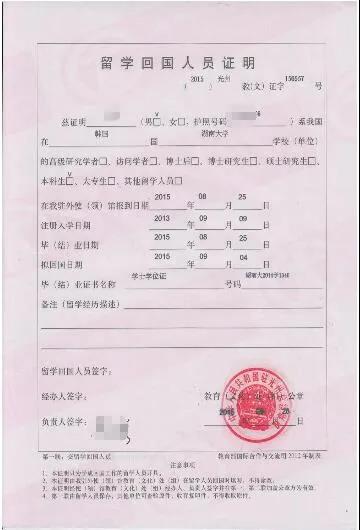 留学回国人员证明
（ 2015 ） 光州 教(文)证字 156557 号
兹证明 (男☑、女□，护照号码 ) 系我国
在 韩国 国 湖南大学 学校（单位）
的高级研究学者□、访问学者□、博士后□、博士研究生□、硕士研究生□、
本科生☑、大专生□、其他留学人员□
在我驻外使（领）馆报到日期 2015 年 08 月 25 日
注册入学日期 2013 年 09 月 09 日
毕（结）业日期 2015 年 08 月 25 日
拟回国日期 2015 年 09 月 04 日
毕（结）业证书名称 学士学位证 号码
备注（留学经历描述）
留学回国人员签字：
经办人签字： 教育（文化）处（组）公章
负责人签字： 2015 08 25
第一联：交留学回国人员 教育部国际合作与交流司2012年制表
注意事项